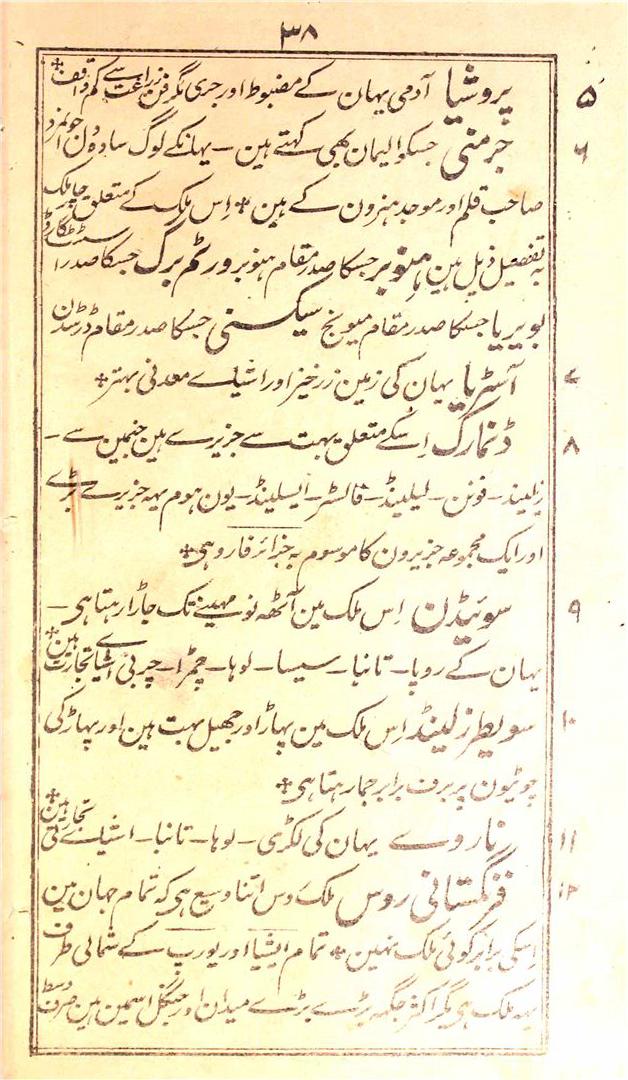 ۳۸
۵ پروشیا آدمی یہان کے مضبوط اور جری مگر فن زراعت سے کم واقف
۶ جرمنی جسکو الیمان بھی کہتے ہین - یہانکے لوگ سادہ دل اور جوانمرد
صاحب قلم اور موجد ہنرون کے ہین اِس ملک کے متعلق چار ملک
بہ تفصیل ذیل ہین ہانوبر جسکا صدر مقام ہنوبر ورٹم برگ جسکا صدر اسٹٹگارڈ
بویریا جسکا صدر مقام میونچ سیکسنی جسکا صدر مقام ڈرسڈن
۷ آسٹریا یہان کی زمین زرخیز اور اشیاے معدنی بہتر
۸ ڈنمارک اِسکے متعلق بہت سے جزیرے ہین جنمین سے -
زیلینڈ - فونن - لیلینڈ - فالسٹر - ایسلینڈ - یون ہوم یہہ جزیرے بڑے
اور ایک مجموعہ جزیرون کا موسوم بہ جزائر فارو ہی
۹ سوئیڈن اِس ملک مین آٹھہ نو مہینے تک جاڑا رہتا ہی -
یہان کے روپا - تانبا - سیسا - لوہا - چمڑا - چربی اشیاے تجارت ہین
۱۰ سویطزرلینڈ اِس ملک مین پہاڑ اور جھیل بہت ہین اور پہاڑ کی
چوٹیون پر برف برابر جما رہتا ہی
۱۱ ناروے یہان کی لکڑی - لوہا - تانبا - اشیاے تجارتی ہین
۱۲ فرنگستانی روس ملک روس اتنا وسیع ہی کہ تمام جہان مین
اِسکی برابر کوئی ملک نہین تمام ایشیا اور یورپ کے شمالی طرف
یہہ ملک ہی مگر اکثر جگہہ بڑے بڑے میدان اور جنگل اسمین ہین صرف وسط